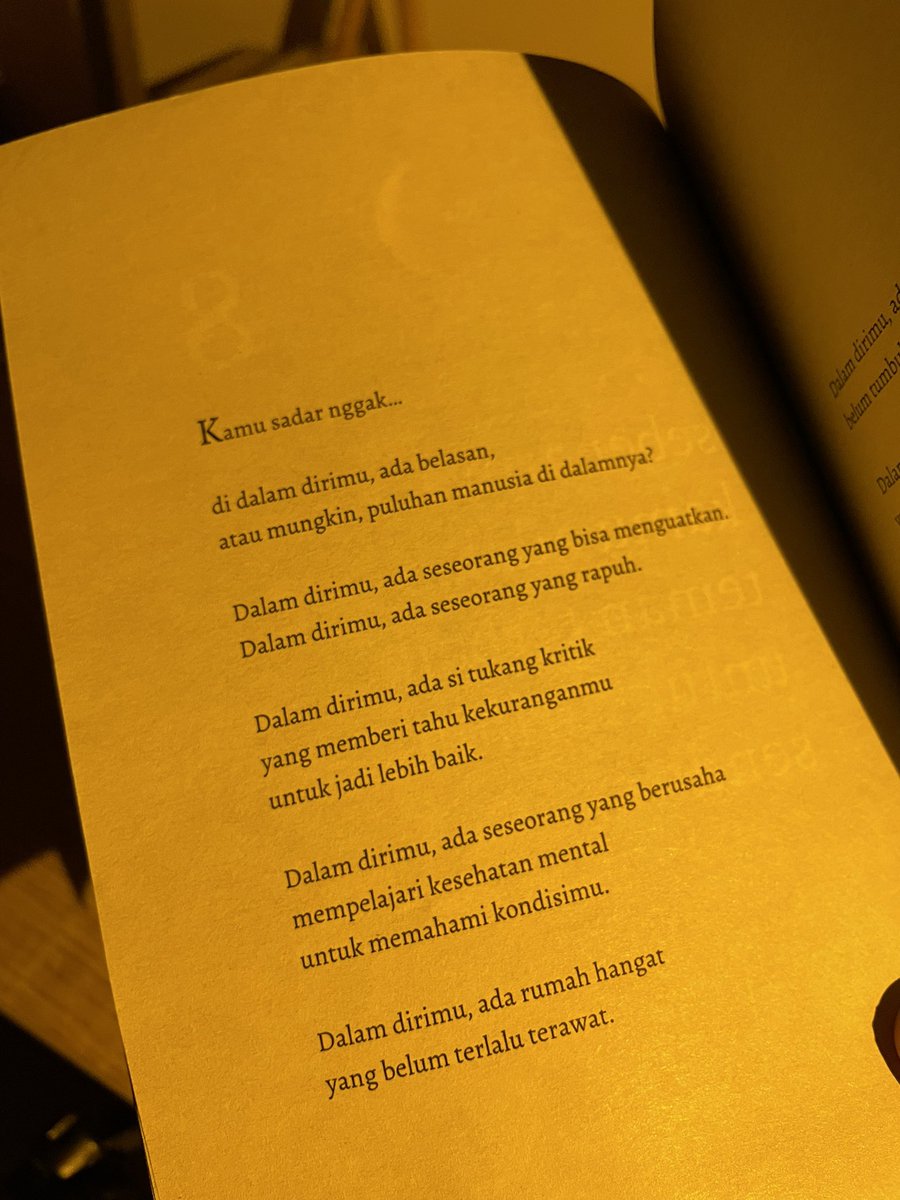 Kamu sadar nggak...
di dalam dirimu, ada belasan,
atau mungkin, puluhan manusia di dalamnya?
Dalam dirimu, ada seseorang yang bisa menguatkan.
Dalam dirimu, ada seseorang yang rapuh.
Dalam dirimu, ada si tukang kritik
yang memberi tahu kekuranganmu
untuk jadi lebih baik.
Dalam dirimu, ada seseorang yang berusaha
mempelajari kesehatan mental
untuk memahami kondisimu.
Dalam dirimu, ada rumah hangat
yang belum terlalu terawat.
Dalam dirimu,
belum